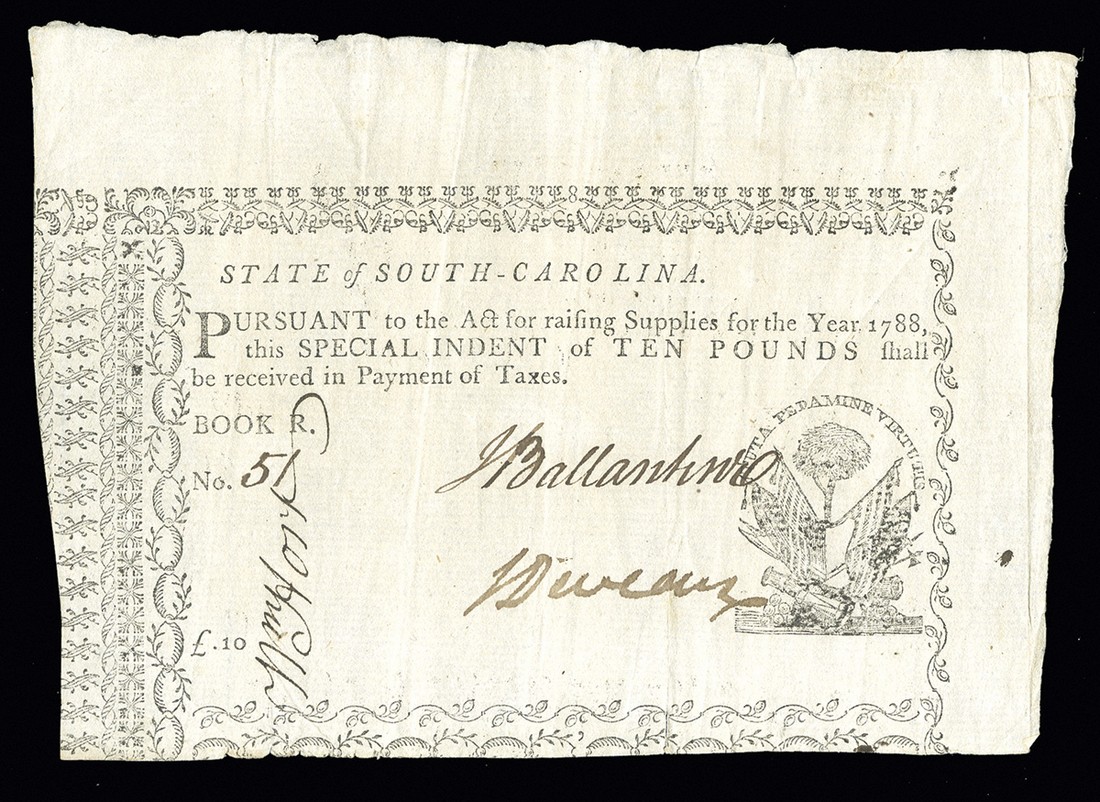 STATE of SOUTH-CAROLINA.
PURSUANT to the Act for raiſing Supplies for the Year 1788,
this SPECIAL INDENT of TEN POUNDS ſhall
be received in Payment of Taxes.
BOOK R.
No. 51
J Ballantine
UTA PEDAMINE VIRTUTIS
£.10